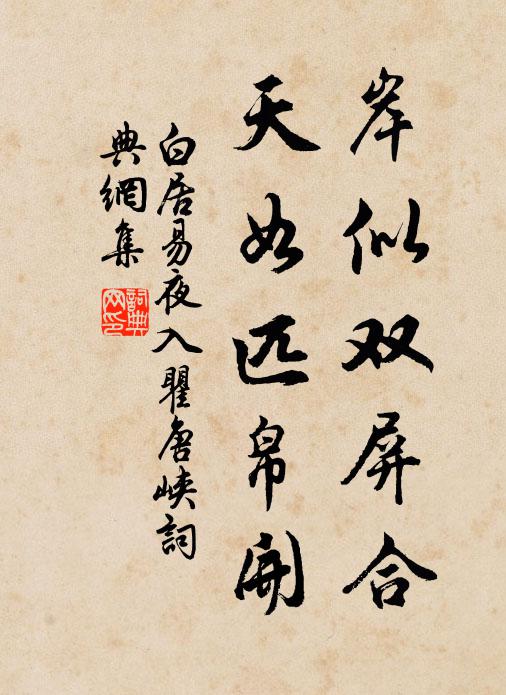 岸似双屏合
天如匹帛開
白居易夜入瞿唐峡詞
典網集
詞典网印